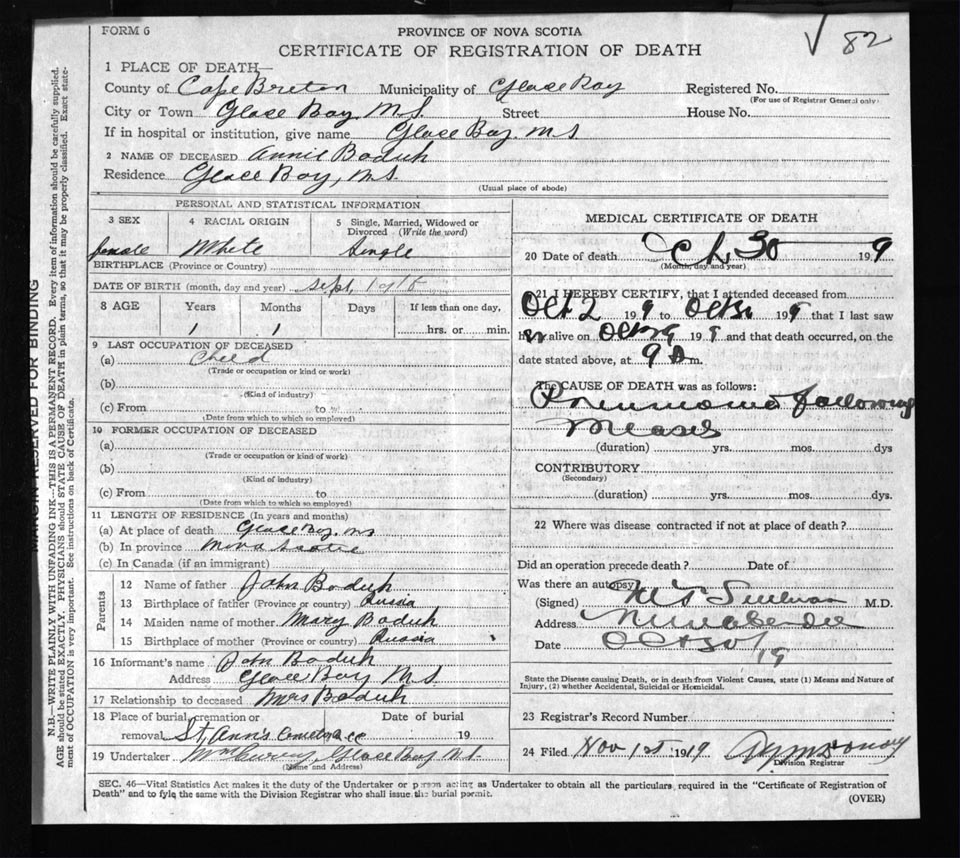 FORM 6
PROVINCE OF NOVA SCOTIA
CERTIFICATE OF REGISTRATION OF DEATH
82
1 PLACE OF DEATH—
County of Cape Breton Municipality of Glace Bay Registered No.
(For use of Registrar General only)
City or Town Glace Bay. N.S. Street House No.
If in hospital or institution, give name Glace Bay. N S
2 NAME OF DECEASED Annie Boduk
Residence Glace Bay, N.S.
(Usual place of abode)
PERSONAL AND STATISTICAL INFORMATION
3 SEX 4 RACIAL ORIGIN 5 Single, Married, Widowed or Divorced (Write the word)
female White Single
BIRTHPLACE (Province or Country)
DATE OF BIRTH (month, day and year) Sept 1918
8 AGE Years Months Days If less than one day,
1 1 hrs. or min.
9 LAST OCCUPATION OF DECEASED
(a) Child
(Trade or occupation or kind or work)
(b)
(Kind of industry)
(c) From to
(Date from which to which so employed)
10 FORMER OCCUPATION OF DECEASED
(a)
(Trade or occupation or kind of work)
(b)
(Kind of industry)
(c) From to
(Date from which to which so employed)
11 LENGTH OF RESIDENCE (In years and months)
(a) At place of death Glace Bay. N S
(b) In province Nova Scotia
(c) In Canada (if an immigrant)
Parents
12 Name of father John Boduk
13 Birthplace of father (Province or country) Russia
14 Maiden name of mother Mary Boduk
15 Birthplace of mother (Province or country) Russia
16 Informant's name John Boduk
Address Glace Bay N.S.
17 Relationship to deceased Mrs Boduk
18 Place of burial, cremation or removal St. Ann's Cemetery Date of burial 19
19 Undertaker Glace Bay N.S.
(Name and Address)
MEDICAL CERTIFICATE OF DEATH
20 Date of death Oct 30 19 9
(Month, day and year)
21 I HEREBY CERTIFY, that I attended deceased from
Oct 2 19 9 to Oct 30 19 9 that I last saw
h alive on Oct 29 19 9 and that death occurred, on the
date stated above, at 9 m.
The CAUSE OF DEATH was as follows:
Pneumonia following
Measles
(duration) yrs. mos. dys
CONTRIBUTORY
(Secondary)
(duration) yrs. mos. dys.
22 Where was disease contracted if not at place of death?
Did an operation precede death? Date of
Was there an autopsy
(Signed) Sullivan M.D.
Address
Date Oct 30/19
State the Disease causing Death, or in death from Violent Causes, state (1) Means and Nature of
Injury, (2) whether Accidental, Suicidal or Homicidal.
23 Registrar's Record Number
24 Filed Nov 1st 1919
Division Registrar
SEC. 46—Vital Statistics Act makes it the duty of the Undertaker or person acting as Undertaker to obtain all the particulars required in the "Certificate of Registration of
Death" and to fyle the same with the Division Registrar who shall issue the burial permit.
(OVER)
MARGIN RESERVED FOR BINDING
N.B.—WRITE PLAINLY WITH UNFADING INK—THIS IS A PERMANENT RECORD. Every item of information should be carefully supplied.
AGE should be stated EXACTLY. PHYSICIANS should STATE CAUSE OF DEATH in plain terms, so that it may be properly classified. Exact state-
ment of OCCUPATION is very important. See instructions on back of Certificate.